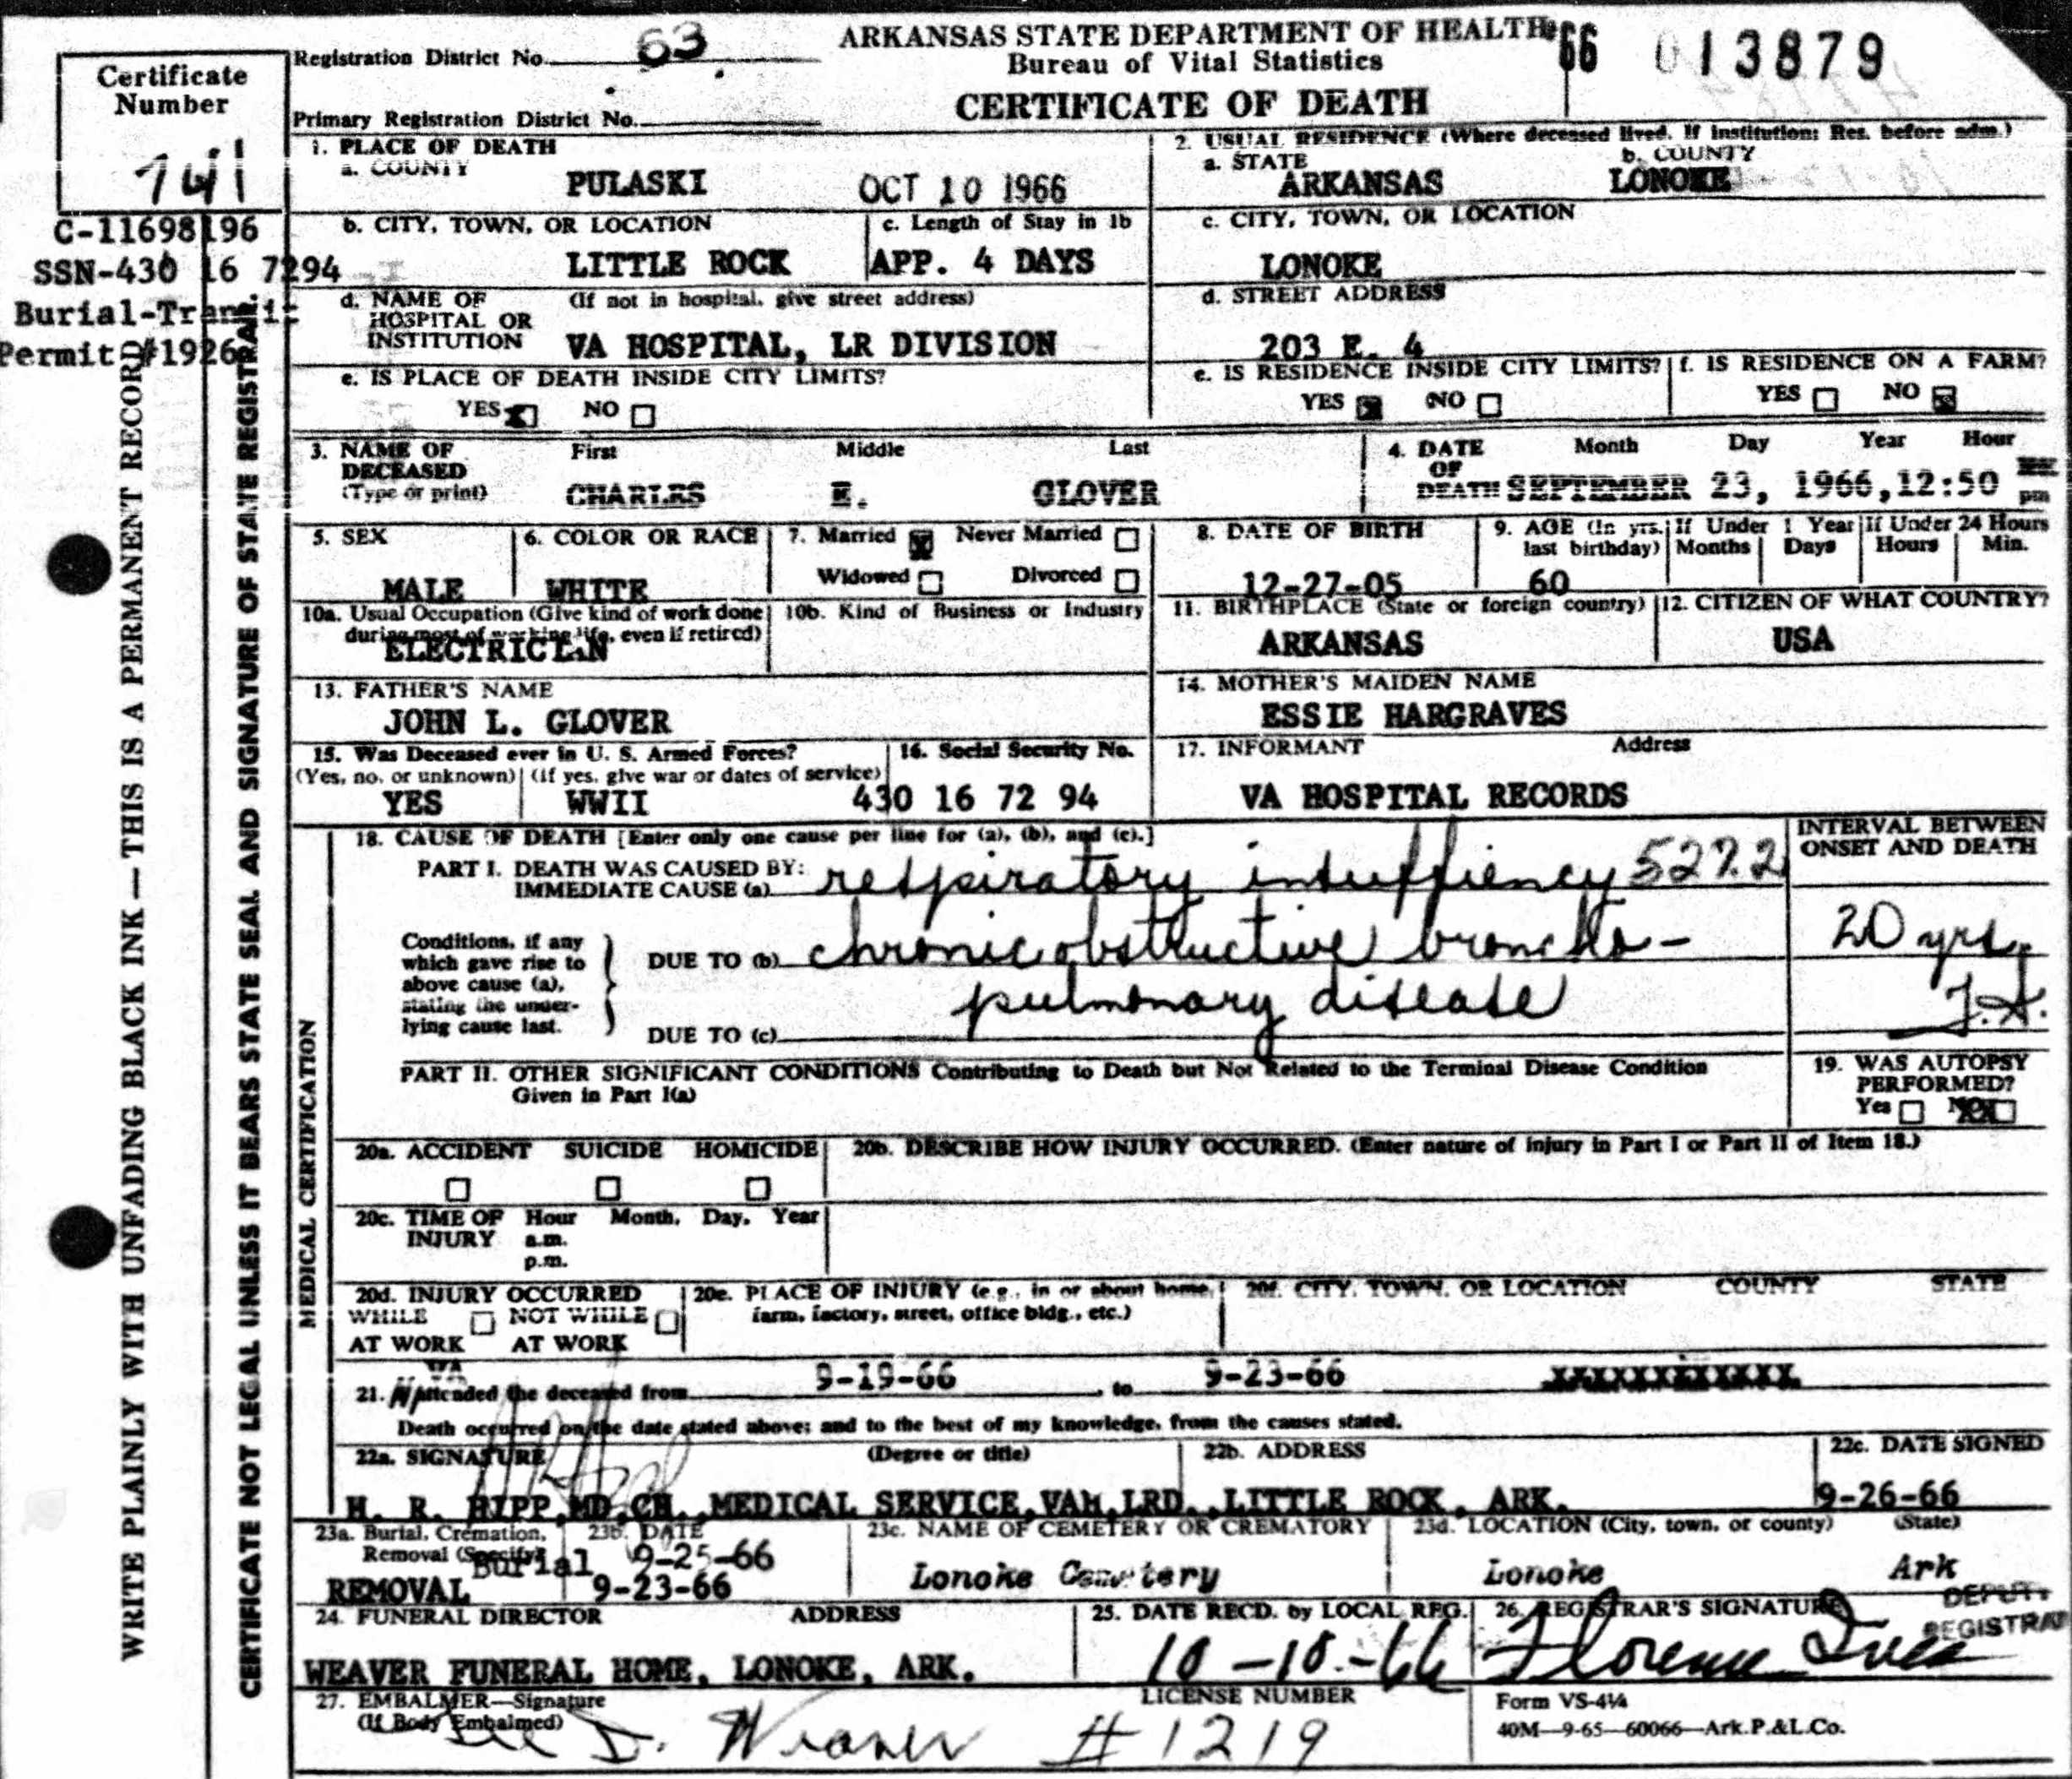 ARKANSAS STATE DEPARTMENT OF HEALTH
Bureau of Vital Statistics
CERTIFICATE OF DEATH
66 013879
Certificate Number
741
Registration District No. 63
Primary Registration District No.
C-11698196
SSN-430 16 7294
Burial-Transit
Permit #1926
WRITE PLAINLY WITH UNFADING BLACK INK — THIS IS A PERMANENT RECORD
CERTIFICATE NOT LEGAL UNLESS IT BEARS STATE SEAL AND SIGNATURE OF STATE REGISTRAR.
1. PLACE OF DEATH
a. COUNTY PULASKI
OCT 10 1966
2. USUAL RESIDENCE (Where deceased lived. If institution: Res. before adm.)
a. STATE ARKANSAS b. COUNTY LONOKE
b. CITY, TOWN, OR LOCATION LITTLE ROCK
c. Length of Stay in 1b APP. 4 DAYS
c. CITY, TOWN, OR LOCATION LONOKE
d. NAME OF HOSPITAL OR INSTITUTION (If not in hospital, give street address)
VA HOSPITAL, LR DIVISION
d. STREET ADDRESS
203 E. 4
e. IS PLACE OF DEATH INSIDE CITY LIMITS?
YES NO
e. IS RESIDENCE INSIDE CITY LIMITS? YES NO
f. IS RESIDENCE ON A FARM? YES NO
3. NAME OF DECEASED (Type or print) First Middle Last
CHARLES E. GLOVER
4. DATE OF DEATH Month Day Year Hour
SEPTEMBER 23, 1966, 12:50 pm
5. SEX MALE
6. COLOR OR RACE WHITE
7. Married Never Married
Widowed Divorced
8. DATE OF BIRTH 12-27-05
9. AGE (In yrs. last birthday) 60
If Under 1 Year Months Days
If Under 24 Hours Hours Min.
10a. Usual Occupation (Give kind of work done during most of working life, even if retired)
ELECTRICIAN
10b. Kind of Business or Industry
11. BIRTHPLACE (State or foreign country) ARKANSAS
12. CITIZEN OF WHAT COUNTRY? USA
13. FATHER'S NAME
JOHN L. GLOVER
14. MOTHER'S MAIDEN NAME
ESSIE HARGRAVES
15. Was Deceased ever in U. S. Armed Forces?
(Yes, no, or unknown) (If yes, give war or dates of service)
YES WWII
16. Social Security No.
430 16 72 94
17. INFORMANT Address
VA HOSPITAL RECORDS
MEDICAL CERTIFICATION
18. CAUSE OF DEATH [Enter only one cause per line for (a), (b), and (c).]
INTERVAL BETWEEN ONSET AND DEATH
PART I. DEATH WAS CAUSED BY:
IMMEDIATE CAUSE (a) respiratory insuffiency 527.2
Conditions, if any which gave rise to above cause (a), stating the underlying cause last.
DUE TO (b) chronic obstructive broncho-
pulmonary disease
20 yrs.
DUE TO (c)
PART II. OTHER SIGNIFICANT CONDITIONS Contributing to Death but Not Related to the Terminal Disease Condition
Given in Part I(a)
19. WAS AUTOPSY PERFORMED?
Yes No
20a. ACCIDENT SUICIDE HOMICIDE
20b. DESCRIBE HOW INJURY OCCURRED. (Enter nature of injury in Part I or Part II of Item 18.)
20c. TIME OF INJURY Hour Month, Day, Year
a.m.
p.m.
20d. INJURY OCCURRED
WHILE AT WORK NOT WHILE AT WORK
20e. PLACE OF INJURY (e.g., in or about home, farm, factory, street, office bldg., etc.)
20f. CITY, TOWN, OR LOCATION COUNTY STATE
VA
21. attended the deceased from 9-19-66 to 9-23-66 XXXXXXXXXXXX
Death occurred on the date stated above; and to the best of my knowledge, from the causes stated.
22a. SIGNATURE (Degree or title)
22b. ADDRESS
22c. DATE SIGNED
H. R. HIPP, MD, CH., MEDICAL SERVICE, VAH, LRD., LITTLE ROCK, ARK.
9-26-66
23a. Burial, Cremation, Removal (Specify)
Burial
REMOVAL
23b. DATE
9-25-66
9-23-66
23c. NAME OF CEMETERY OR CREMATORY
Lonoke Cemetery
23d. LOCATION (City, town, or county) (State)
Lonoke Ark
24. FUNERAL DIRECTOR ADDRESS
WEAVER FUNERAL HOME, LONOKE, ARK.
25. DATE RECD. by LOCAL REG.
10-10-66
26. REGISTRAR'S SIGNATURE
DEPUTY REGISTRAR
Florence
27. EMBALMER—Signature
(If Body Embalmed)
D. Weaver
LICENSE NUMBER
#1219
Form VS-4¼
40M—9-65—60066—Ark.P.&L.Co.